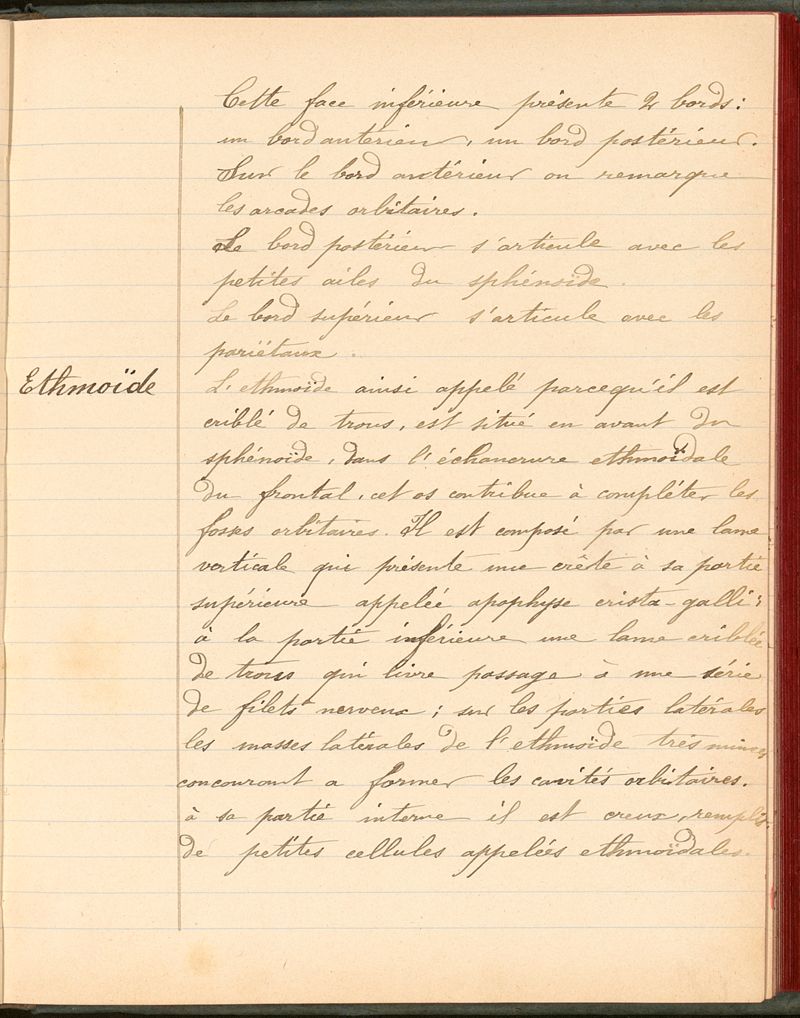 Cette face inférieure présente 2 bords :
un bord antérieur, un bord postérieur.
Sur le bord antérieur on remarque
les arcades orbitaires.
Le bord postérieur s'articule avec les
petites ailes du sphénoïde.
Le bord supérieur s'articule avec les
pariétaux.
Ethmoïde
L'ethmoïde ainsi appelé parcequ'il est
criblé de trous, est situé en avant du
sphénoïde, dans l'échancrure ethmoïdale
du frontal, cet os contribue à compléter les
fosses orbitaires. Il est composé par une lame
verticale qui présente une crête à sa partie
supérieure appelée apophyse crista-galli ;
à la partie inférieure une lame criblée
de trous qui livre passage à une série
de filets nerveux ; sur les parties latérales
les masses latérales de l'ethmoïde très minces
concourant a former les cavités orbitaires.
à sa partie interne il est creux, remplis
de petites cellules appelées ethmoïdales.